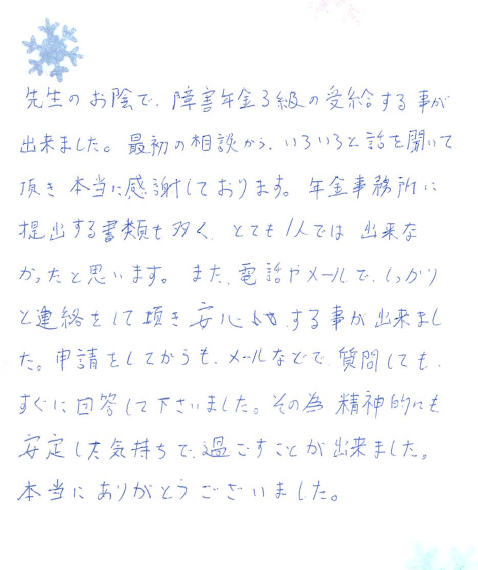 先生のお陰で、障害年金3級の受給する事が
出来ました。最初の相談から、いろいろと話を聞いて
頂き本当に感謝しております。年金事務所に
提出する書類も多く、とても1人では出来な
かったと思います。また、電話やメールで、しっかり
と連絡をして頂き安心する事が出来まし
た。申請をしてからも、メールなどで質問しても、
すぐに回答して下さいました。その為精神的にも
安定した気持ちで過ごすことが出来ました。
本当にありがとうございました。